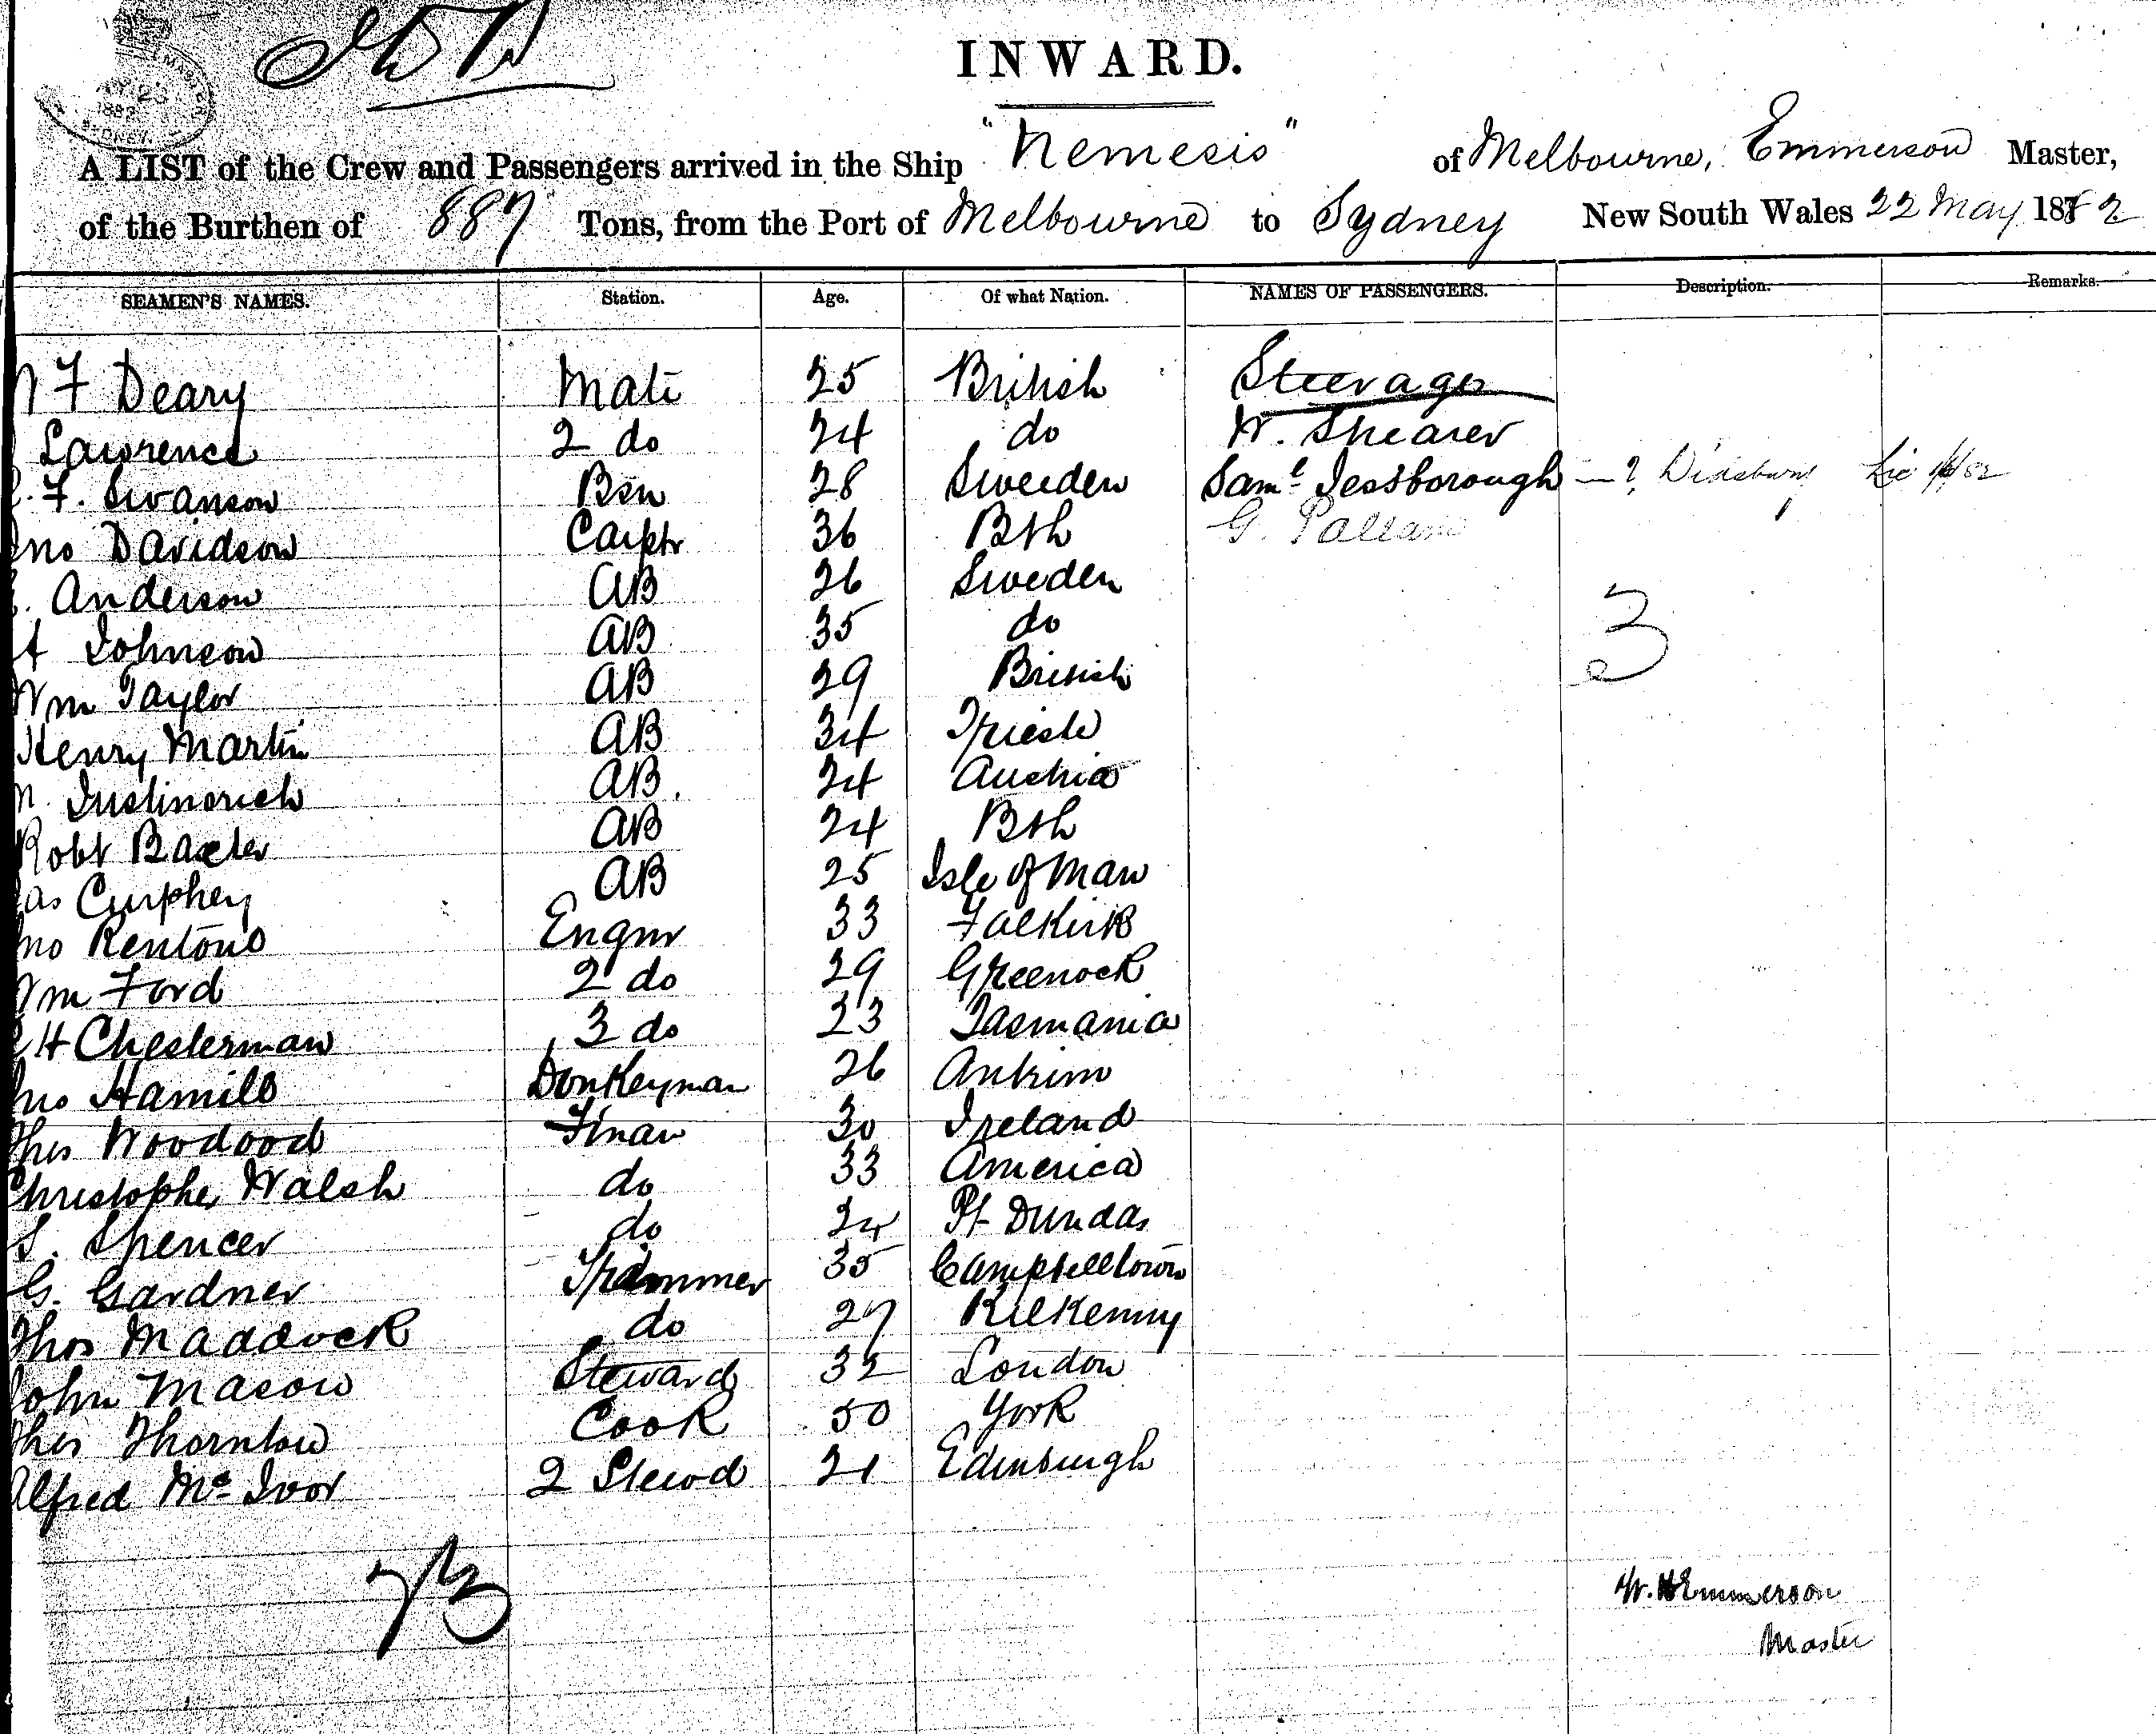 INWARD.
A LIST of the Crew and Passengers arrived in the Ship "Nemesis" of Melbourne, Emmerson Master,
of the Burthen of 887 Tons, from the Port of Melbourne to Sydney New South Wales 22 May 1882
SEAMEN'S NAMES. Station. Age. Of what Nation. NAMES OF PASSENGERS. Description. Remarks.
F Deary Mate 25 British Steerage
Lawrence 2 do 24 do W. Shearer
F. Swanson Bsn 28 Sweeden Saml Jessborough — ?
Jno Davidson Carptr 36 Bsh G.
Anderson AB 26 Sweden
A Johnson AB 35 do 3
Wm Taylor AB 29 British
Henry Martin AB 34 Trieste
Iustinovich AB. 24 Austria
Robt Baxter AB 24 Bsh
Jas Curphey AB 25 Isle of Man
Jno Renton Engnr 33 Falkirk
Wm Ford 2 do 29 Greenock
H Chesterman 3 do 23 Tasmania
Jno Hamill Donkeyman 26 Antrim
Thos Woodood Fman 30 Ireland
Christopher Walsh do 33 America
S. Spencer do 24 Pt Dundas
G. Gardner Trimmer 35 Campbelltown
Thos Maddock do 27 Kilkenny
John Mason Steward 32 London
Thos Thornton Cook 50 York
Alfred Mc Ivor 2 Stewd 21 Edinburgh
23
W. H Emmerson
Master